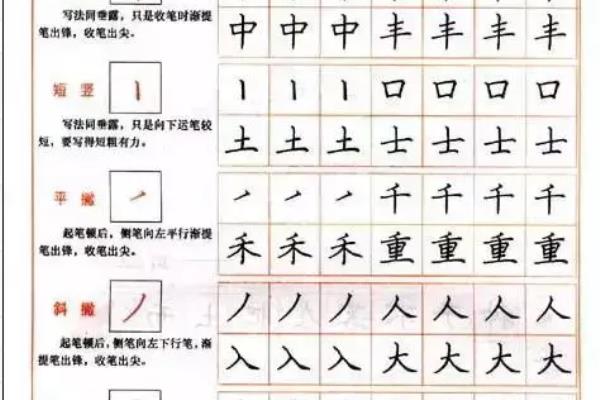 写法同垂露，只是收笔时渐提
笔出锋，收笔出尖。
中中中丰丰丰丰
短竖
丨丨丨丨口口口口
写法同垂露，只是向下运笔较
短，要写得短粗有力。
土土土士士士士
平撇
㇒㇒㇒㇒千千千千
起笔顿后，侧笔向左平行渐提
笔出锋，收笔出尖。
禾禾禾重重重重
斜撇
丿丿丿丿人人人人
起笔顿后，侧笔向左下行笔，渐
提笔出锋，收笔出尖。
入入入大大大大